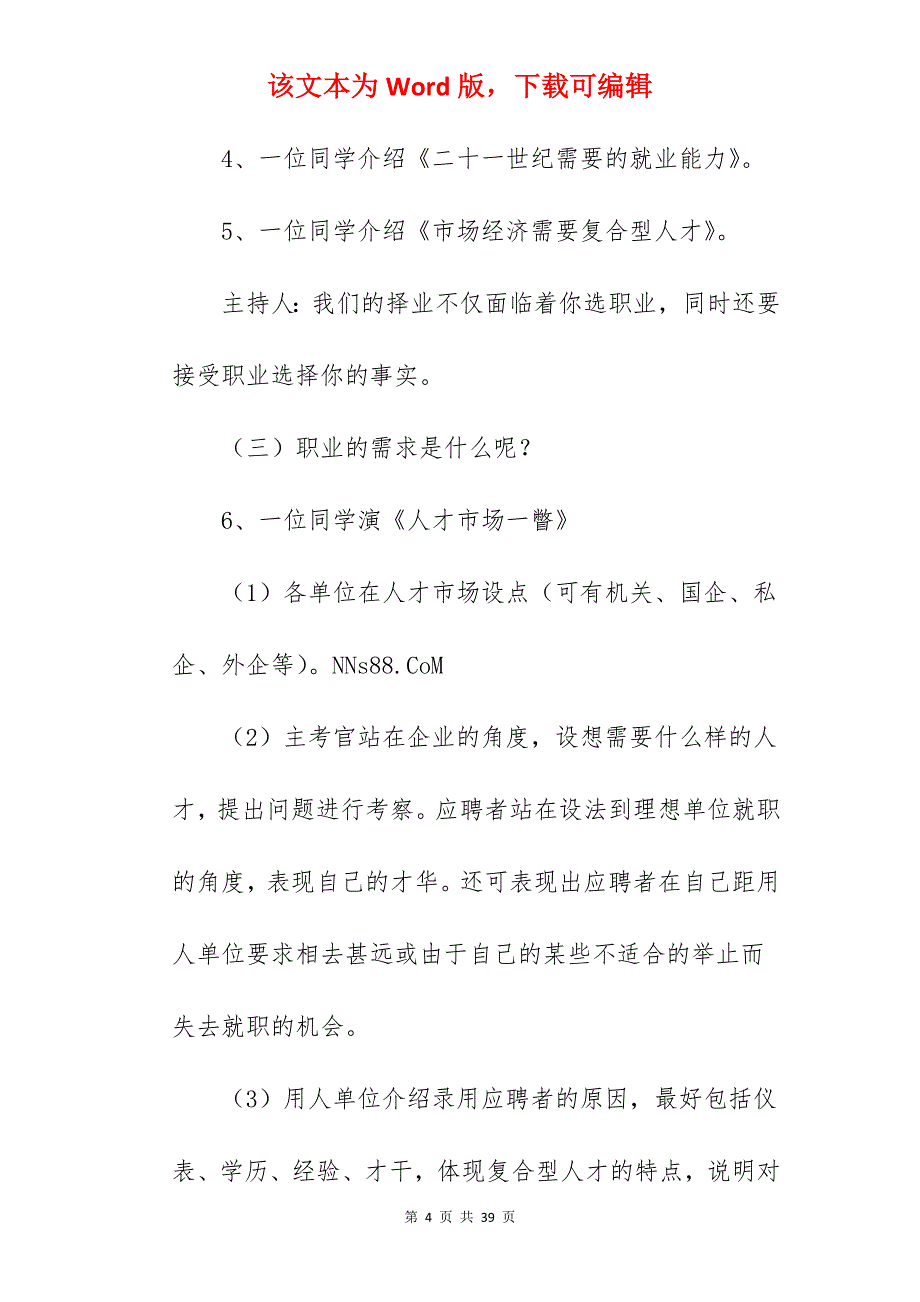 该文本为 Word 版，下载可编辑
4、一位同学介绍《二十一世纪需要的就业能力》。
5、一位同学介绍《市场经济需要复合型人才》。
主持人：我们的择业不仅面临着你选职业，同时还要
接受职业选择你的事实。
（三）职业的需求是什么呢？
6、一位同学演《人才市场一瞥》
（1）各单位在人才市场设点（可有机关、国企、私
企、外企等）。NNs88.CoM
（2）主考官站在企业的角度，设想需要什么样的人
才，提出问题进行考察。应聘者站在设法到理想单位就职
的角度，表现自己的才华。还可表现出应聘者在自己距用
人单位要求相去甚远或由于自己的某些不适合的举止而
失去就职的机会。
（3）用人单位介绍录用应聘者的原因，最好包括仪
表、学历、经验、才干，体现复合型人才的特点，说明对
第 4 页 共 39 页